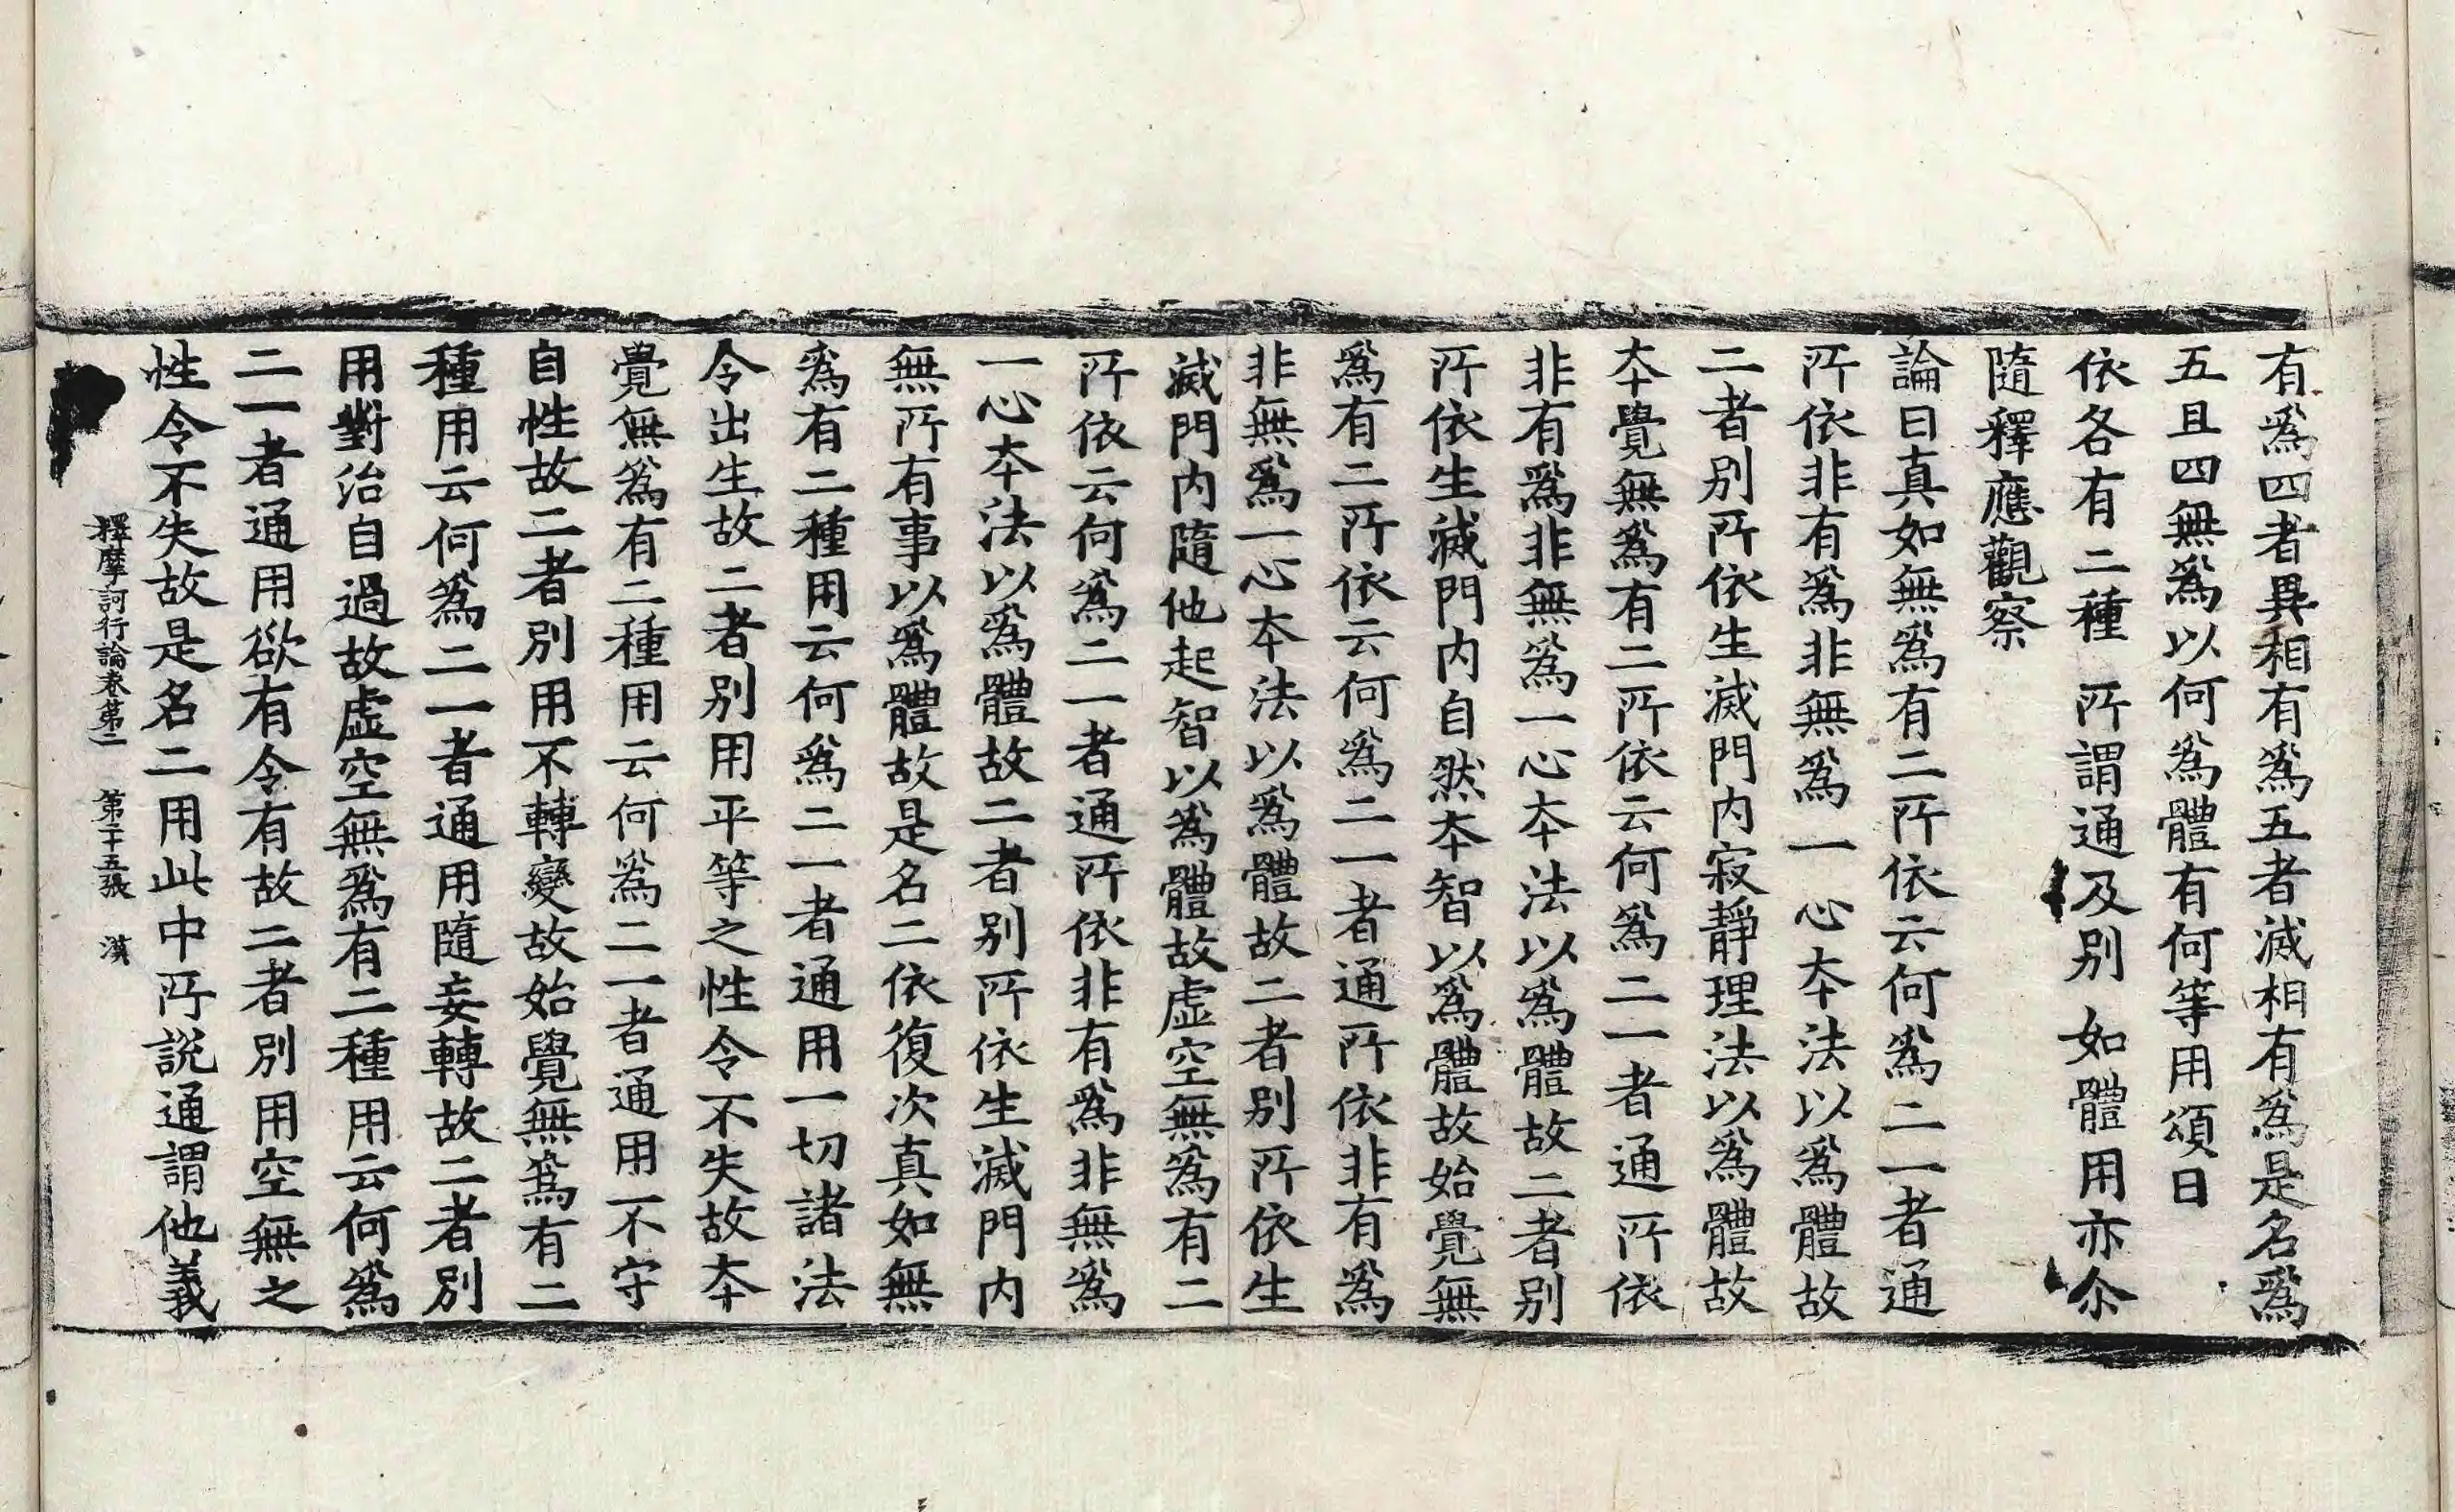 有爲四者異相有爲五者滅相有爲是名爲
五且四無爲以何爲體有何等用頌曰
依各有二種 所謂通及別 如體用亦尒
隨釋應觀察
論曰真如無爲有二所依云何爲二一者通
所依非有爲非無爲一心本法以爲體故
二者別所依生滅門内寂靜理法以爲體故
本覺無爲有二所依云何爲二一者通所依
非有爲非無爲一心本法以爲體故二者別
所依生滅門内自然本智以爲體故始覺無
爲有二所依云何爲二一者通所依非有爲
非無爲一心本法以爲體故二者別所依生
滅門内隨他起智以爲體故虛空無爲有二
所依云何爲二一者通所依非有爲非無爲
一心本法以爲體故二者別所依生滅門内
無所有事以爲體故是名二依復次真如無
爲有二種用云何爲二一者通用一切諸法
令出生故二者別用平等之性令不失故本
覺無爲有二種用云何爲二一者通用不守
自性故二者別用不轉變故始覺無爲有二
種用云何爲二一者通用隨妄轉故二者別
用對治自過故虛空無爲有二種用云何爲
二一者通用欲有令有故二者別用空無之
性令不失故是名二用此中所說通謂他義
釋摩訶衍論卷第二 第二十五張 漠